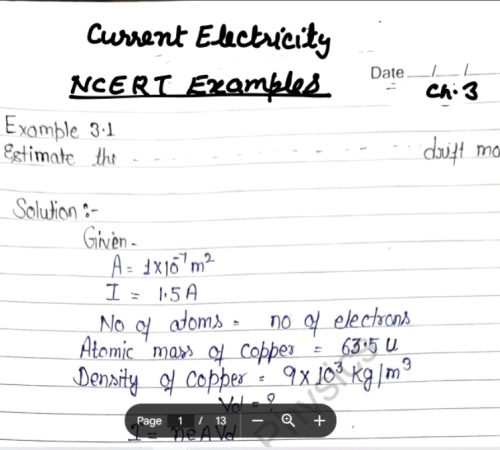 Current Electricity
NCERT Examples
Date / /
Ch. 3
Example 3.1
Estimate the - - - - - - - - - - drift mo
Solution :-
Given -
A = 1×10⁻⁷ m²
I = 1.5 A
No of atoms = no of electrons
Atomic mass of copper = 63.5 u
Density of copper = 9 × 10³ kg/m³
Vd = ?
Page 1 / 13 − +
I = neAVd
Physics